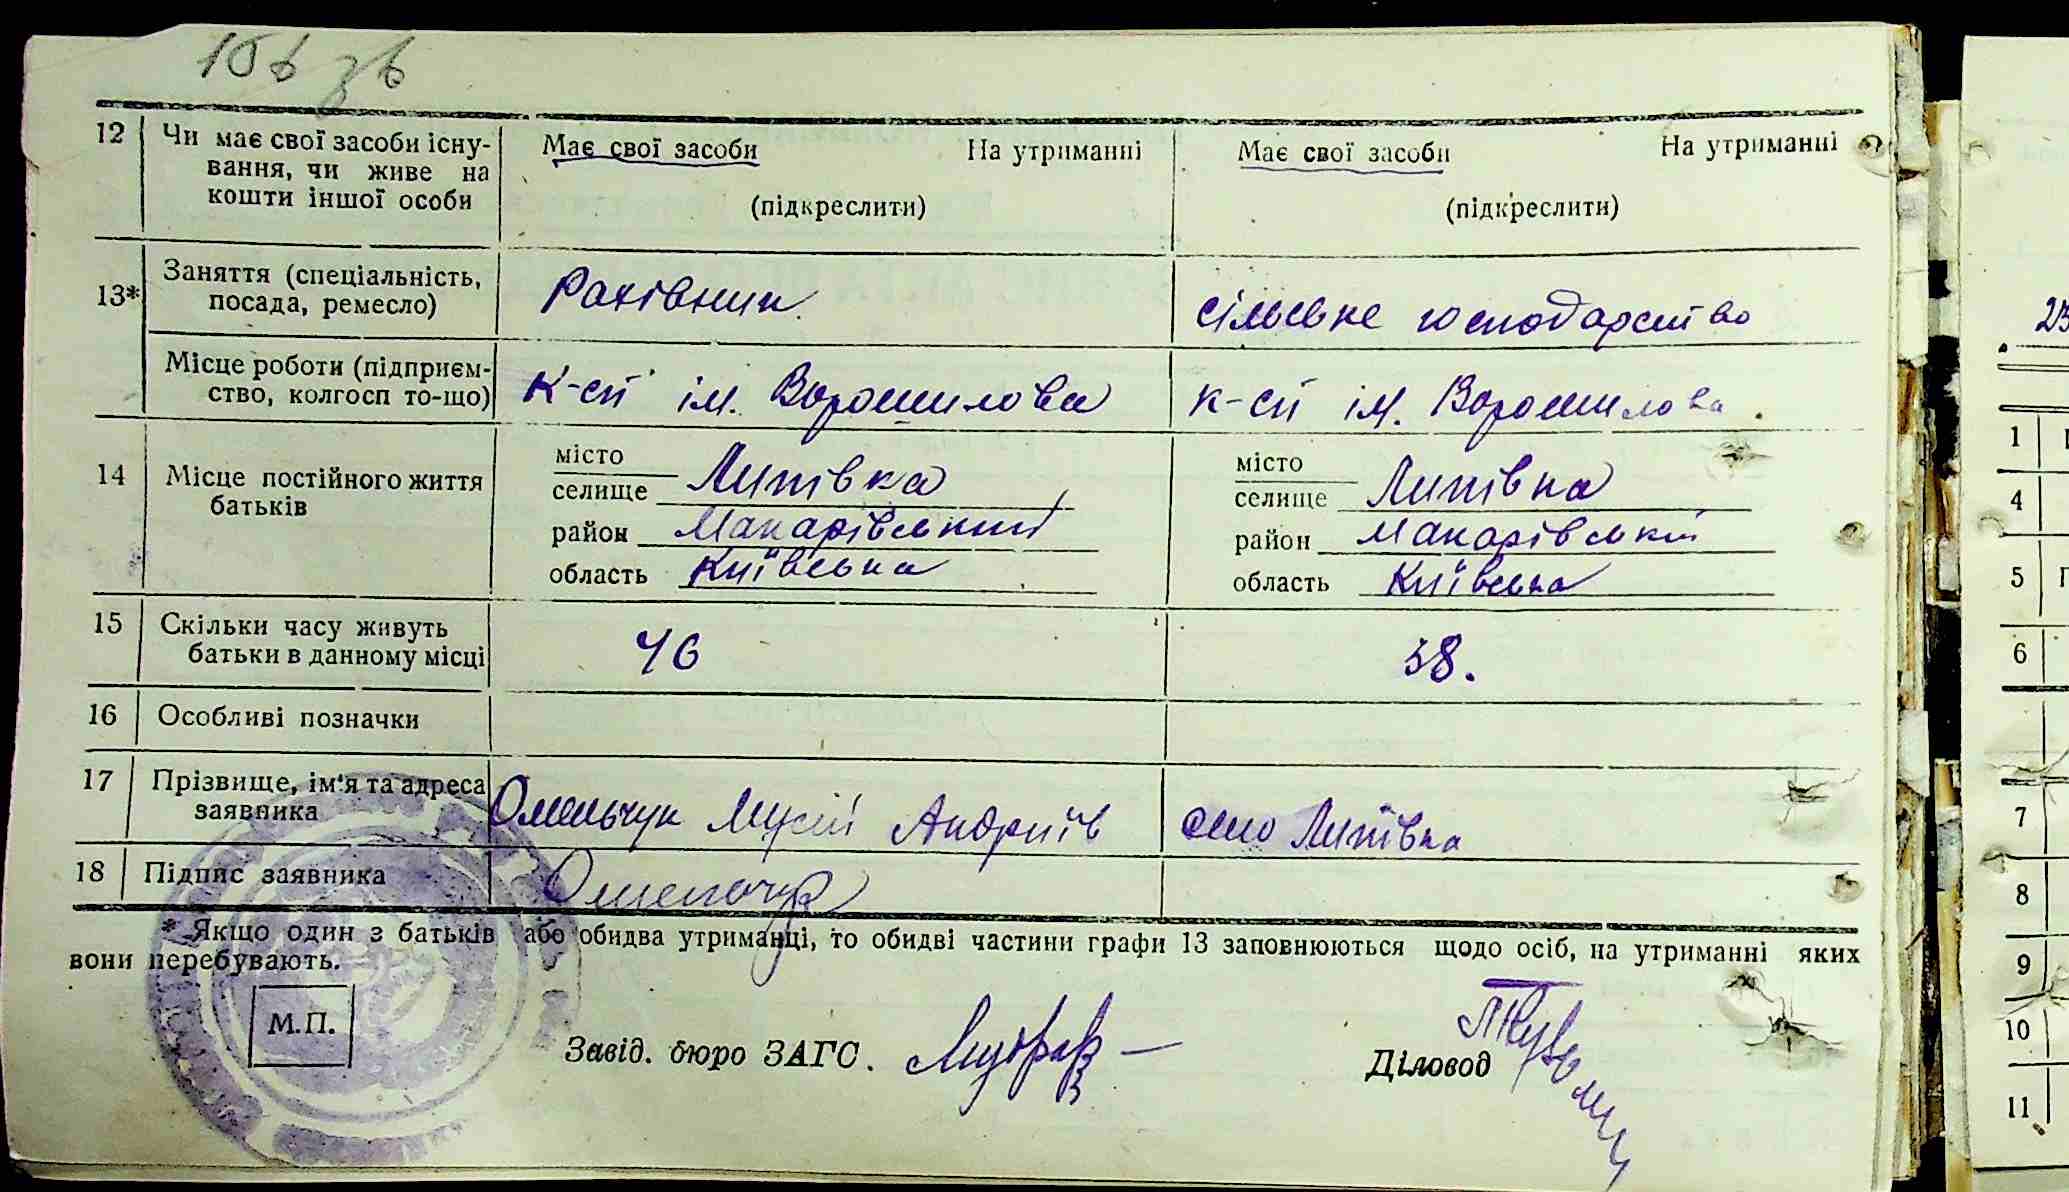 156 зв
12 Чи має свої засоби існу- Має свої засоби На утриманні Має свої засоби На утриманні
вання, чи живе на
кошти іншої особи (підкреслити) (підкреслити)
13* Заняття (спеціальність, Рахівник сільське господарство
посада, ремесло)
Місце роботи (підприєм- к-сп ім. Ворошилова к-сп ім. Ворошилова.
ство, колгосп то-що)
14 Місце постійного життя місто місто
батьків селище Липівка селище Липівка
район Макарівський район Макарівський
область Київська область Київська
15 Скільки часу живуть 46 38.
батьки в данному місці
16 Особливі позначки
17 Прізвище, ім'я та адреса Омельчук Мусій Андріїв село Липівка
заявника
18 Підпис заявника
* Якщо один з батьків або обидва утриманці, то обидві частини графи 13 заповнюються щодо осіб, на утриманні яких
вони перебувають.
М.П.
Завід. бюро ЗАГС. Діловод
1
4
5
6
7
8
9
10
11